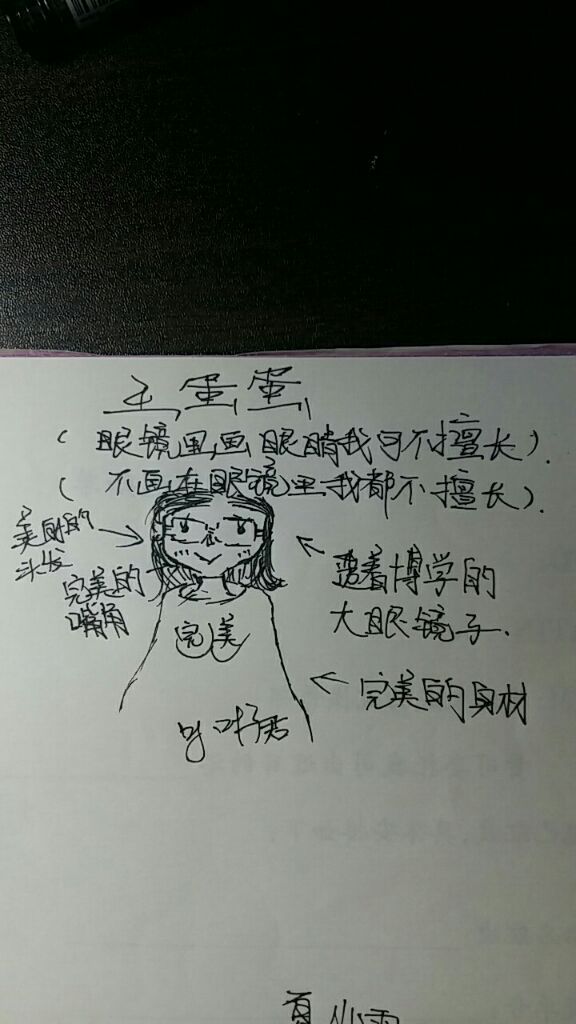 王蛋蛋
(眼镜里画眼睛我可不擅长).
(不画在眼镜里我都不擅长).
美丽的
头发
完美的
嘴角
透着博学的
大眼镜子.
完美
完美的身材